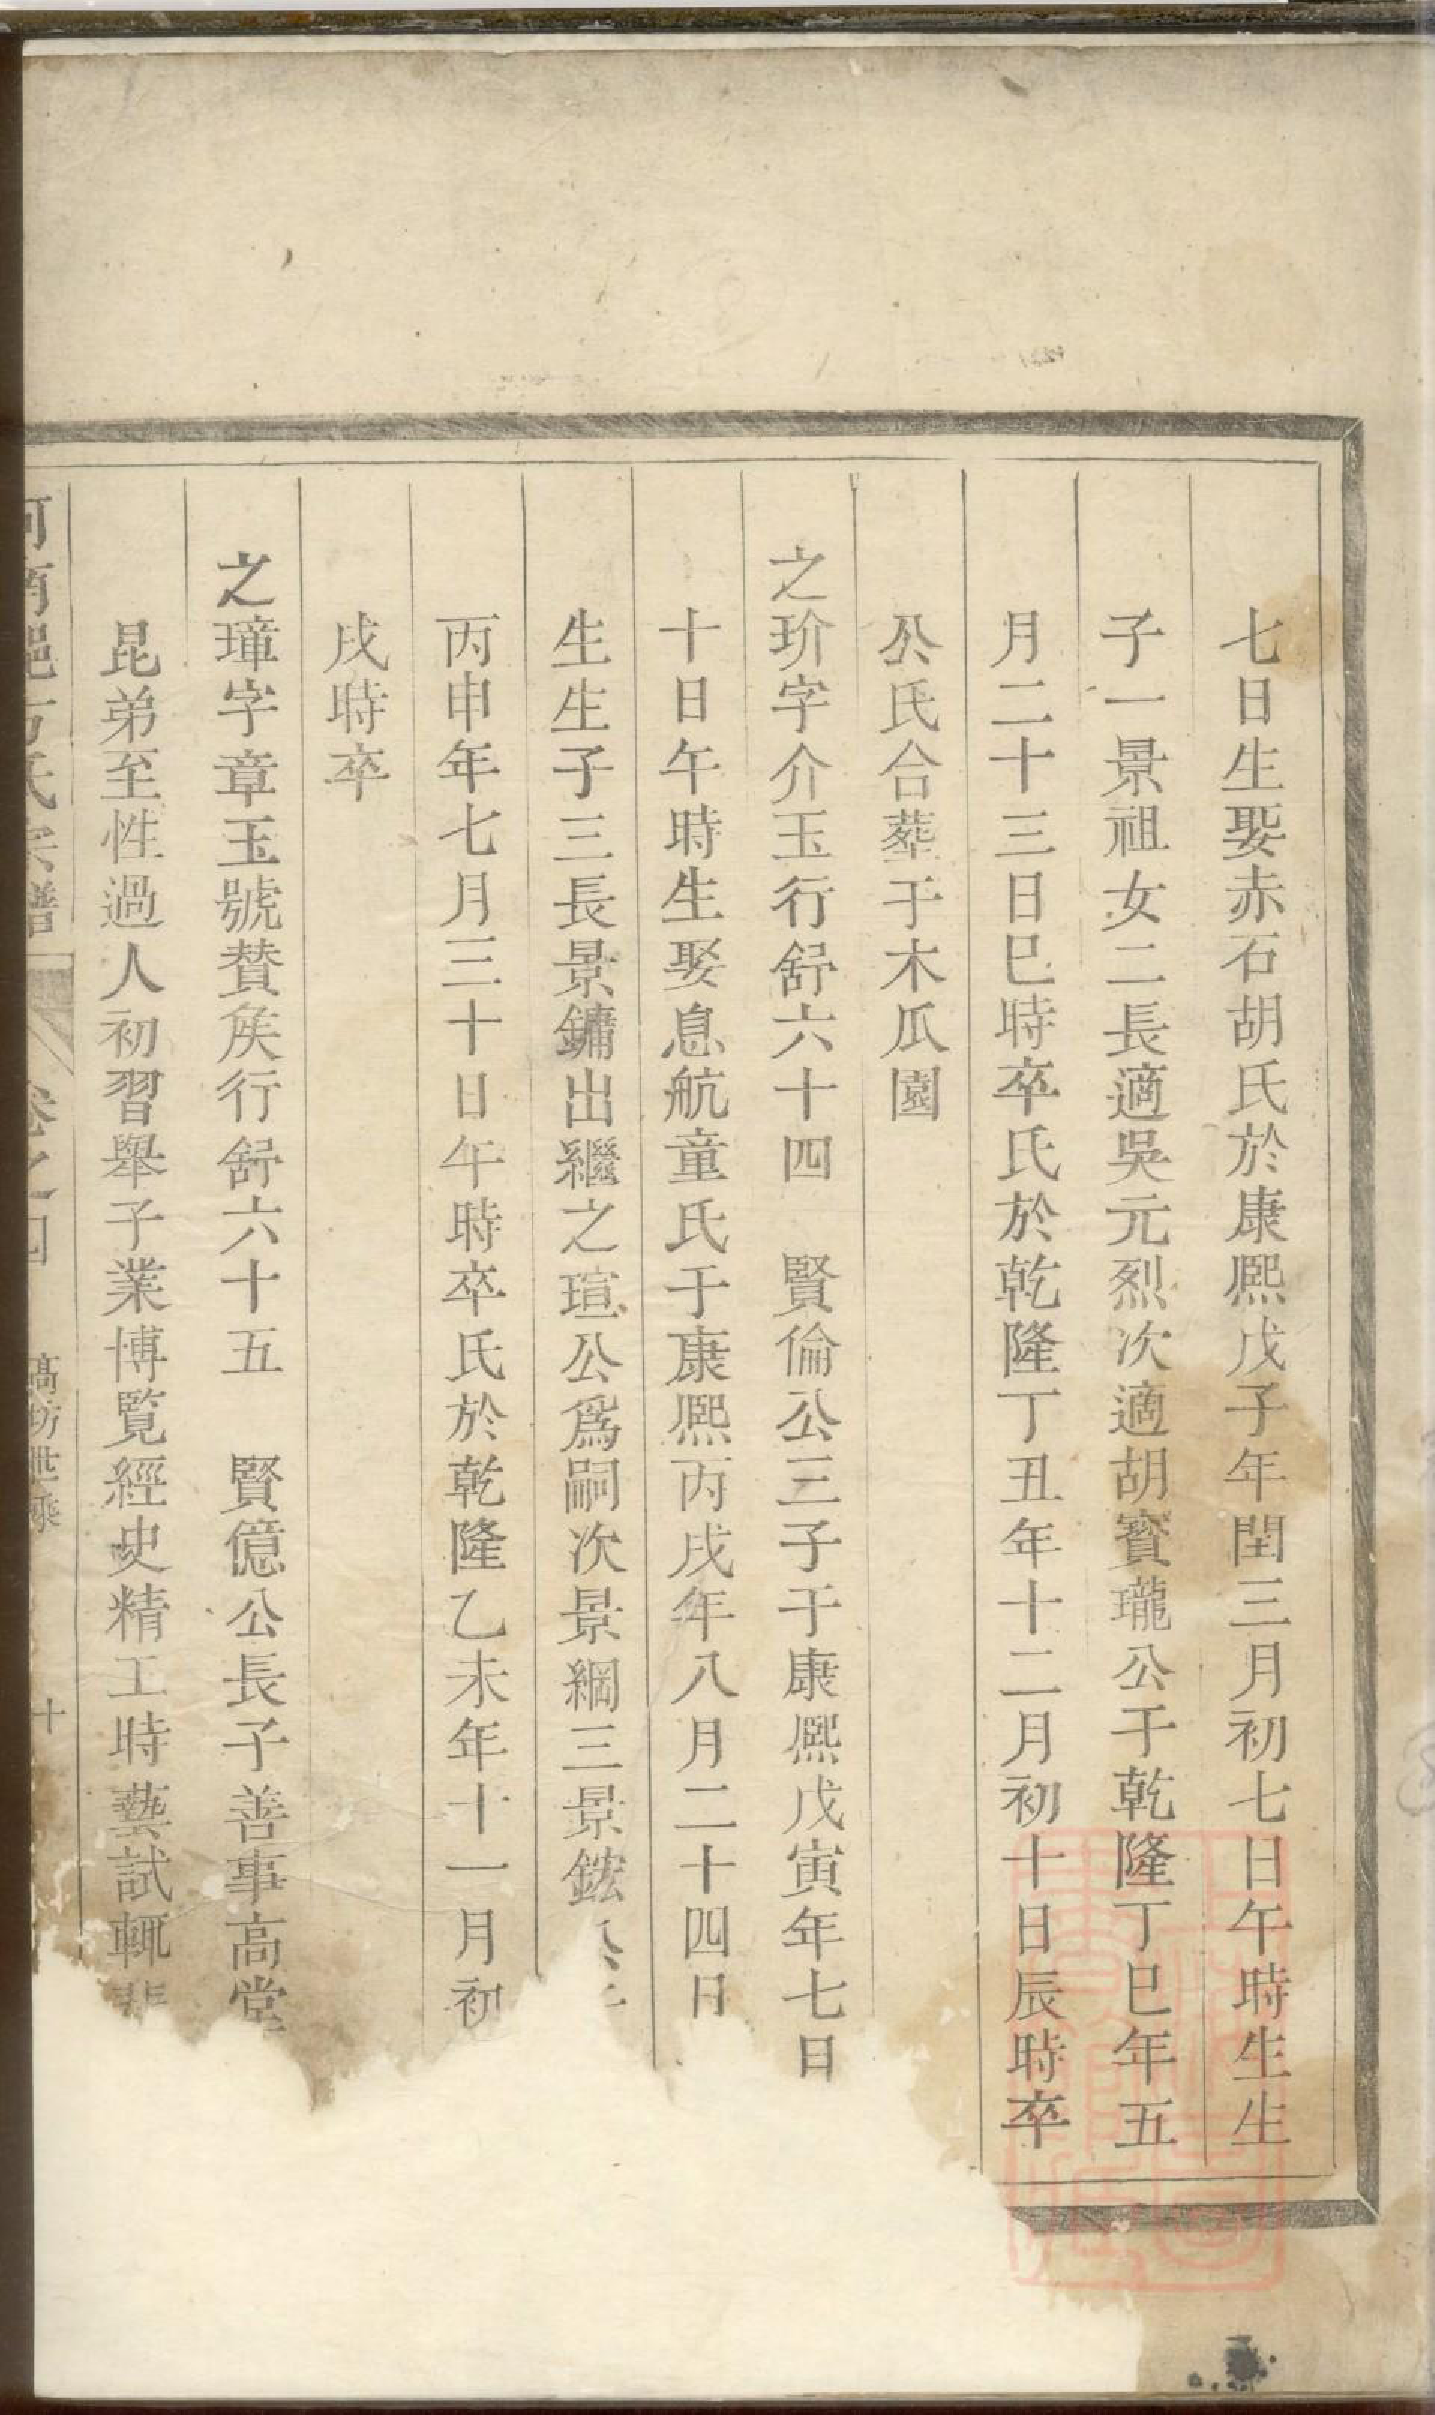 七日生娶赤石胡氏於康熙戊子年閏三月初七日午時生生
子一景祖女二長適吳元烈次適胡賓瓏公于乾隆丁巳年五
月二十三日巳時卒氏於乾隆丁丑年十二月初十日辰時卒
公氏合葬于木瓜園
之玠字介玉行舒六十四 賢倫公三子于康熙戊寅年七日
十日午時生娶息航童氏于康熙丙戌年八月二十四日
生生子三長景鏞出繼之瑄公爲嗣次景綱三景鋐公于
丙申年七月三十日午時卒氏於乾隆乙未年十一月初
戌時卒
之璋字章玉號賛矦行舒六十五 賢億公長子善事高堂
昆弟至性過人初習舉子業博覽經史精工時藝試輒
氏宗譜 卷之四 高坊世乘 十